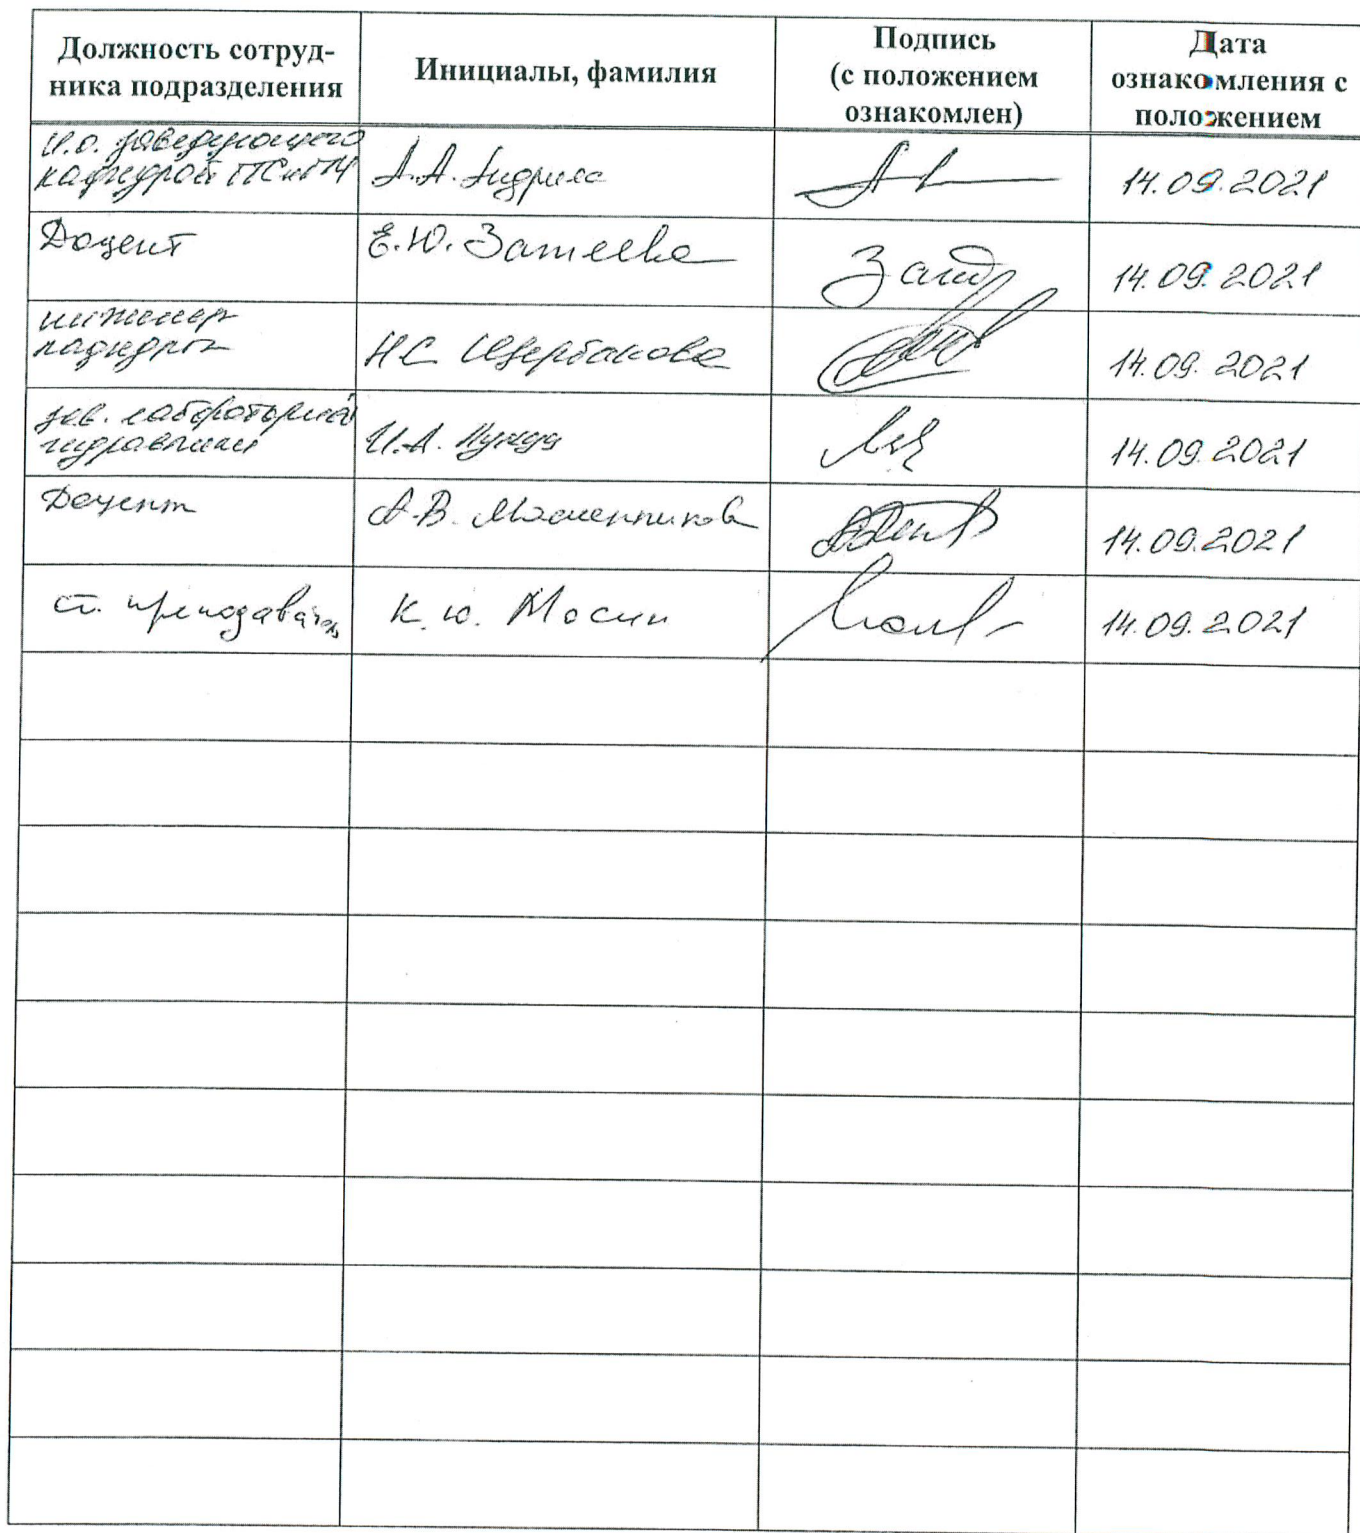 Должность сотруд-
ника подразделения
Инициалы, фамилия
Подпись
(с положением
ознакомлен)
Дата
ознакомления с
положением
И.о. заведующего
кафедрой
А.А.
14.09.2021
Доцент
Е.Ю.
14.09.2021
инженер
кафедры
НС Щербакова
14.09.2021
зав. лабораторией
гидравлики
И.А.
14.09.2021
Доцент
А.В.
14.09.2021
ст. преподаватель
К.Ю. Мосин
14.09.2021